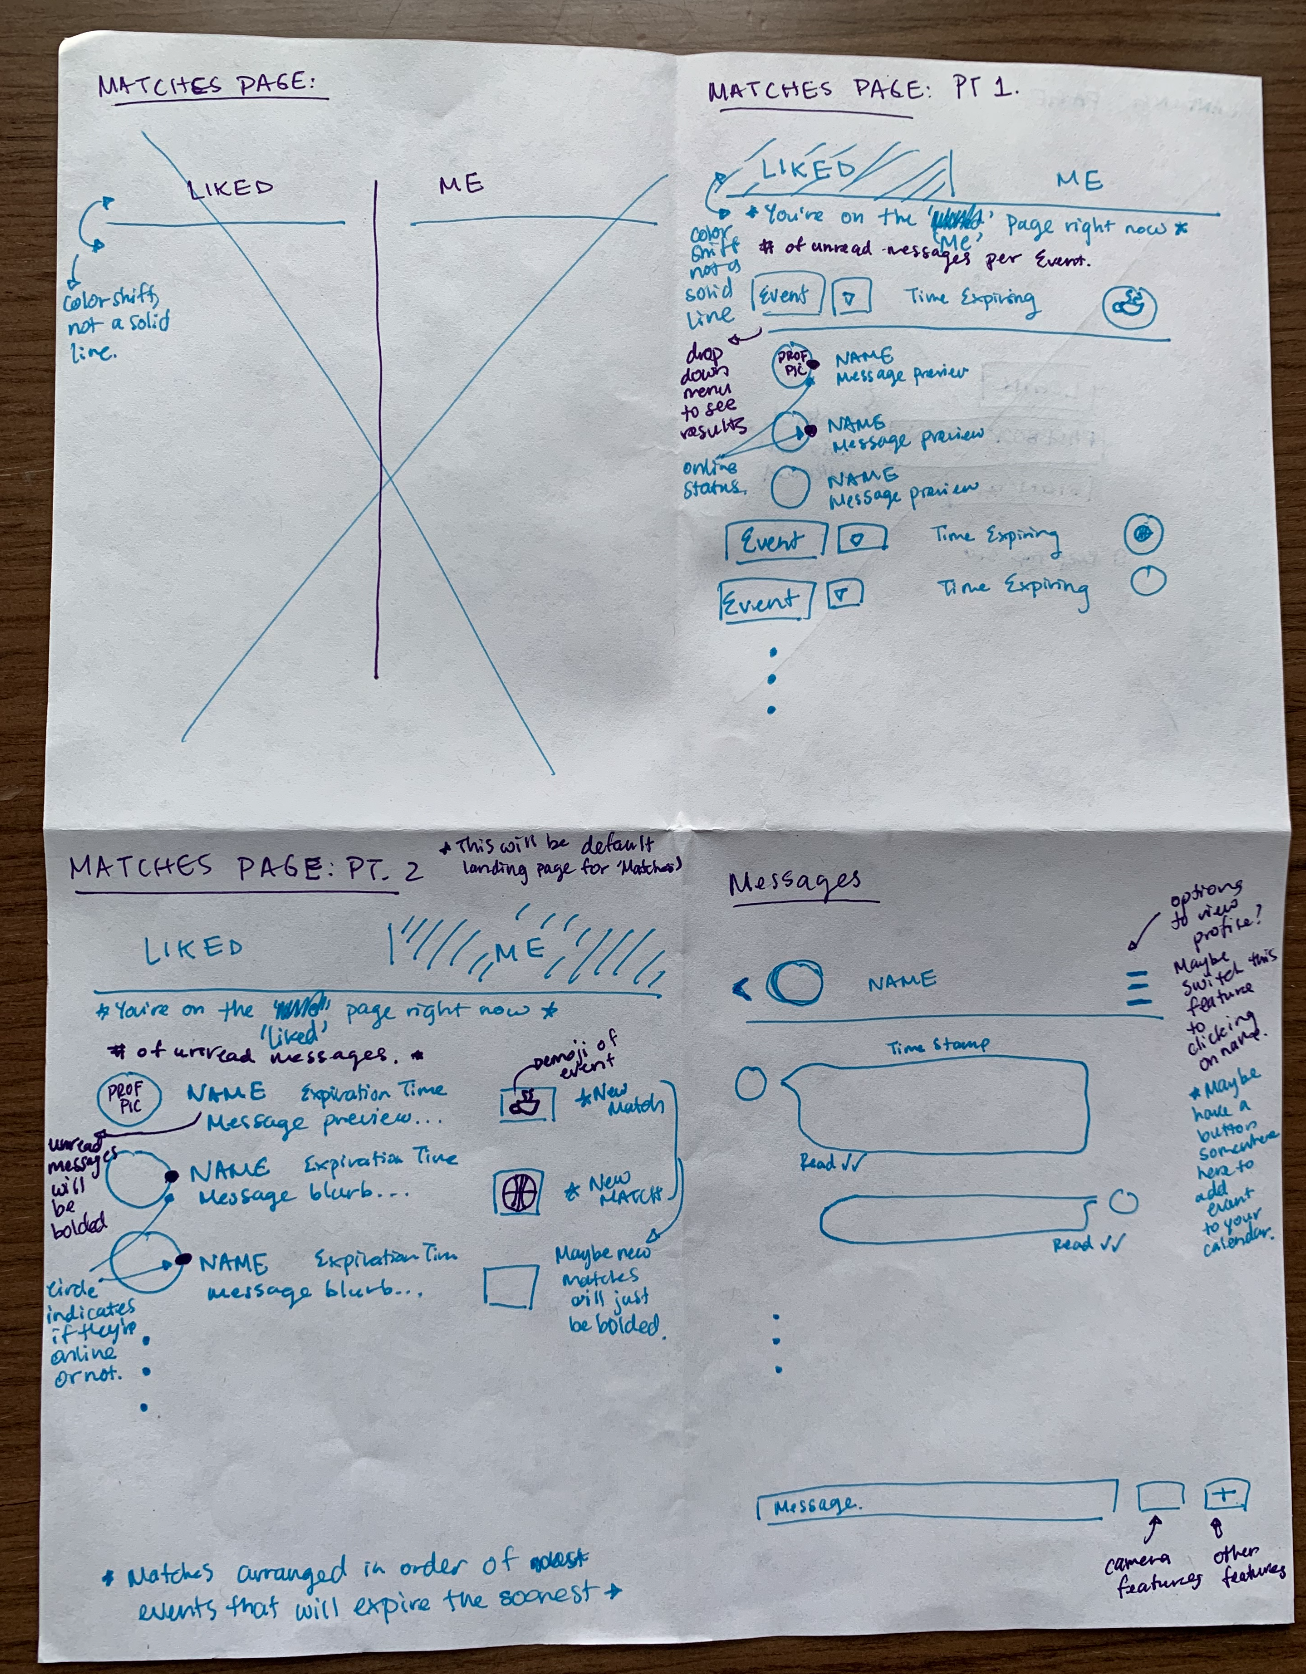 MATCHES PAGE:
LIKED
ME
color shift,
not a solid
line.
MATCHES PAGE: PT 1.
LIKED
ME
* You're on the
'Me'
page right now *
color
shift
not a
solid
line
# of unread messages per Event.
Event
Time Expiring
drop
down
menu
to see
results
PROF
PIC
NAME
Message preview
NAME
Message preview
online
status.
NAME
Message preview
Event
Time Expiring
Event
Time Expiring
MATCHES PAGE: PT. 2
* This will be default
landing page for 'Matches'
LIKED
ME
* You're on the
'liked'
page right now *
# of unread messages. *
emoji of
event
PROF
PIC
NAME Expiration Time
Message preview...
* New
Match
unread
messages
will
be
bolded
NAME Expiration Time
Message blurb...
* NEW
MATCH
NAME Expiration Tim
message blurb...
Maybe new
matches
will just
be bolded.
circle
indicates
if they're
online
or not.
* Matches arranged in order of
events that will expire the soonest *
Messages
options
to view
profile?
Maybe
switch this
feature
to
clicking
on name.
NAME
Time Stamp
Read ✓✓
Read ✓✓
* Maybe
have a
button
somewhere
here to
add
event
to your
calendar.
Message.
camera
features
other
features